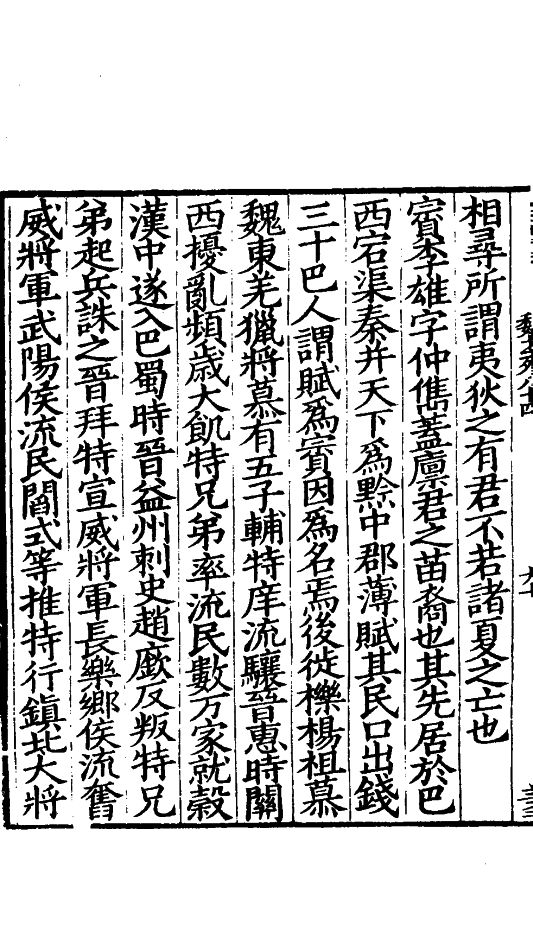 相尋所謂夷狄之有君不若諸夏之亡也
賨李雄字仲儁蓋廪君之苗裔也其先居於巴
西宕渠秦并天下爲黔中郡薄賦其民口出錢
三十巴人謂賦爲賨因爲名焉後徙櫟楊祖慕
魏東羌獵將慕有五子輔特庠流驤晉惠時關
西擾亂頻歲大飢特兄弟率流民數万家就穀
漢中遂入巴蜀時晉益州刺史趙廞反叛特兄
弟起兵誅之晉拜特宣威將軍長樂鄉侯流奮
威將軍武陽侯流民閻式等推特行鎮北大將